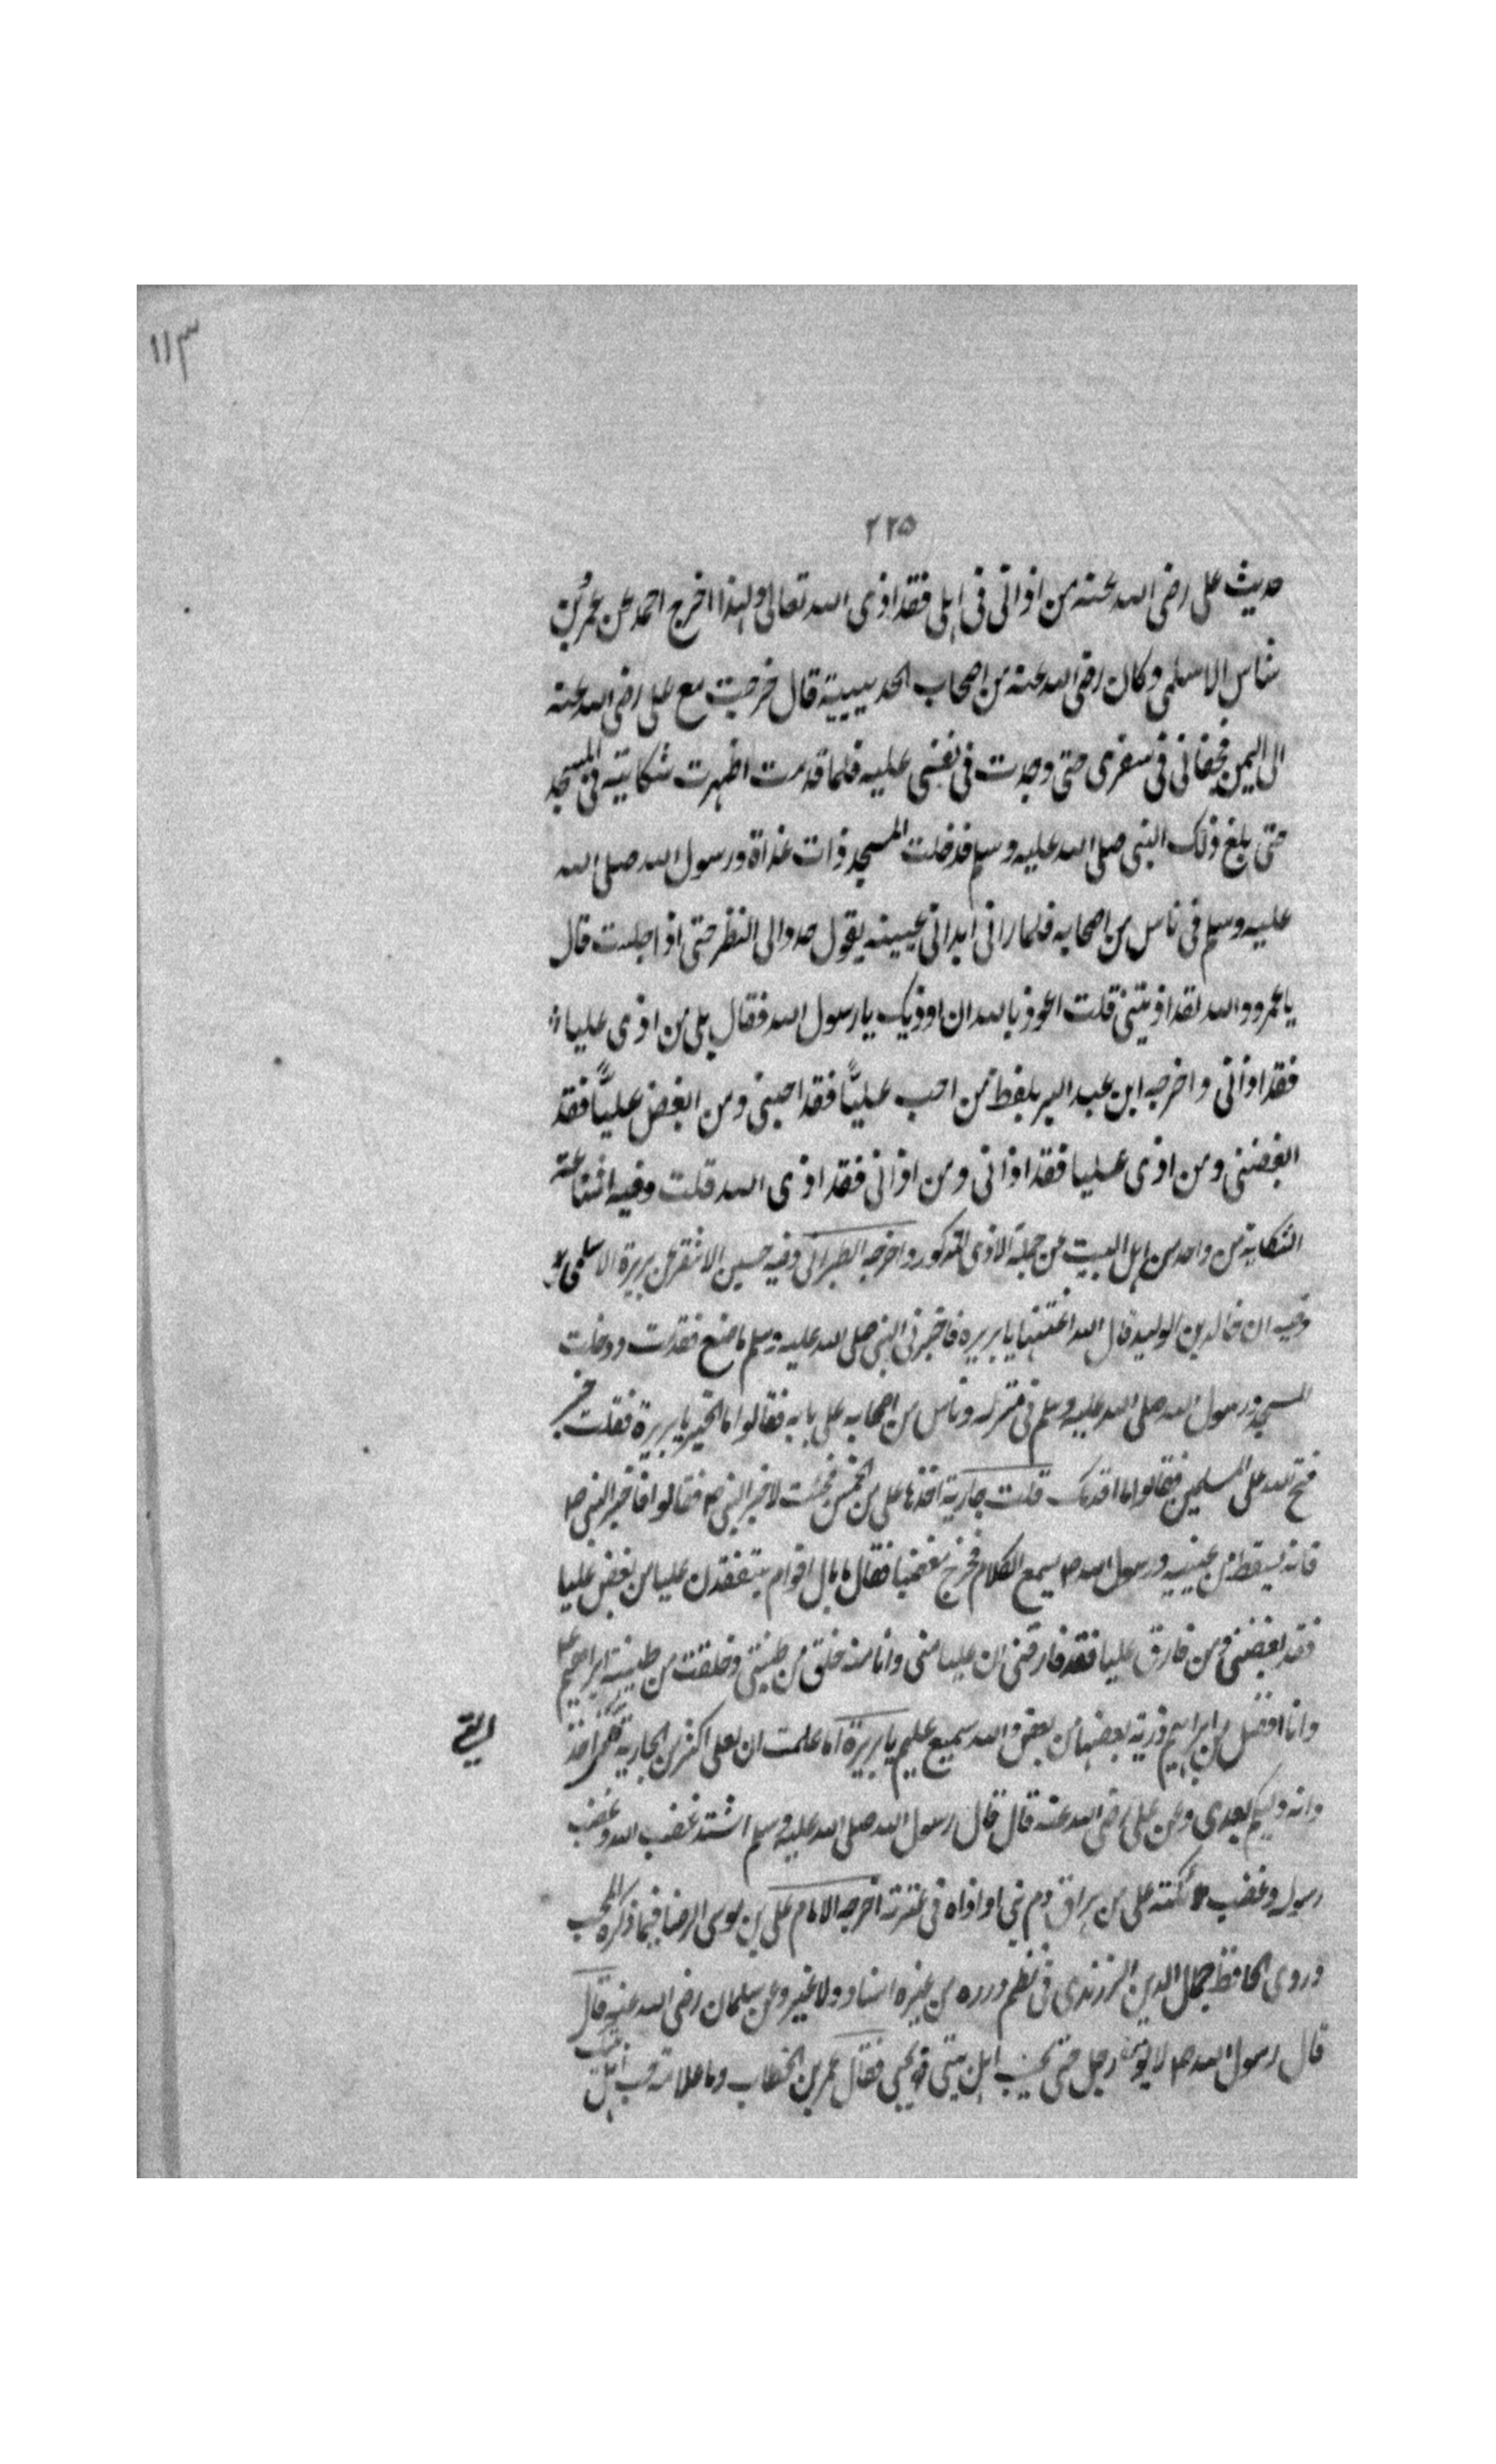 ١١٣
٢٢٥
حديث على رضى الله عنه من اذانى فى اهلى فقد اذى الله تعالى ولهذا اخرج احمد عن عمرو بن
شاس الاسلمى وكان رضى الله عنه من اصحاب الحديبية قال خرجت مع على رضى الله عنه
الى اليمن فجفانى فى سفرى حتى وجدت فى نفسى عليه فلما قدمت اظهرت شكايته فى المسجد
حتى بلغ ذلك النبى صلى الله عليه وسلم فدخلت المسجد ذات غداة ورسول الله صلى الله
عليه وسلم فى ناس من اصحابه فلما رانى ابدانى عينيه يقول حدد الى النظر حتى اذا جلست قال
يا عمرو والله لقد اذيتنى قلت اعوذ بالله ان اوذيك يا رسول الله فقال بلى من اذى عليا
فقد اذانى واخرجه ابن عبد البر بلفظ من احب عليًّا فقد احبنى ومن ابغض عليًّا فقد
ابغضنى ومن اذى عليا فقد اذانى ومن اذانى فقد اذى الله قلت وفيه اشاعة
الشكاية من واحد من اهل البيت من جملة الاذى المذكور واخرجه الطبرانى وفيه حسين الاشقر عن بريرة الاسلمى
وفيه ان خالد بن الوليد قال الله اغتنمها يا بريره فاخبرنى النبى صلى الله عليه وسلم ما صنع فقدمت ودخلت
المسجد ورسول الله صلى الله عليه وسلم فى منزله وناس من اصحابه على بابه فقالوا ما الخبر يا بريرة فقلت خير
فتح الله على المسلمين فقالوا ما اقدمك قلت جارية اخذها على من الخمس فجئت لاخبر النبى ص فقالوا فاخبر النبى ص
فانه يسقط من عينيه ورسول الله ص يسمع الكلام فخرج مغضبا فقال ما بال اقوام يتنقصون عليا من بغض عليا
فقد بغضنى ومن فارق عليا فقد فارقنى ان عليا منى وانا منه خلق من طينتى وخلقت من طينة ابراهيم
وانا افضل من ابراهيم ذرية بعضها من بعض والله سميع عليم يا بريرة اما علمت ان لعلى اكثر من الجارية التى اخذ
وانه وليكم بعدى وعن على رضى الله عنه قال قال رسول الله صلى الله عليه وسلم اشتد غضب الله وغضب
رسوله وغضب ملائكته على من هراق دم نبى او اذاه فى عترته اخرجه الامام على بن موسى الرضا فيما ذكره المحب
وروى الحافظ جمال الدين الزرندى فى نظم درره من غيره اسناد ولا غيره وعن سلمان رضى الله عنه قال
قال رسول الله ص لا يؤمن رجل حتى يحب اهل بيتى فى حبى فقال عمر بن الخطاب وما علامة حب اهل بيتك